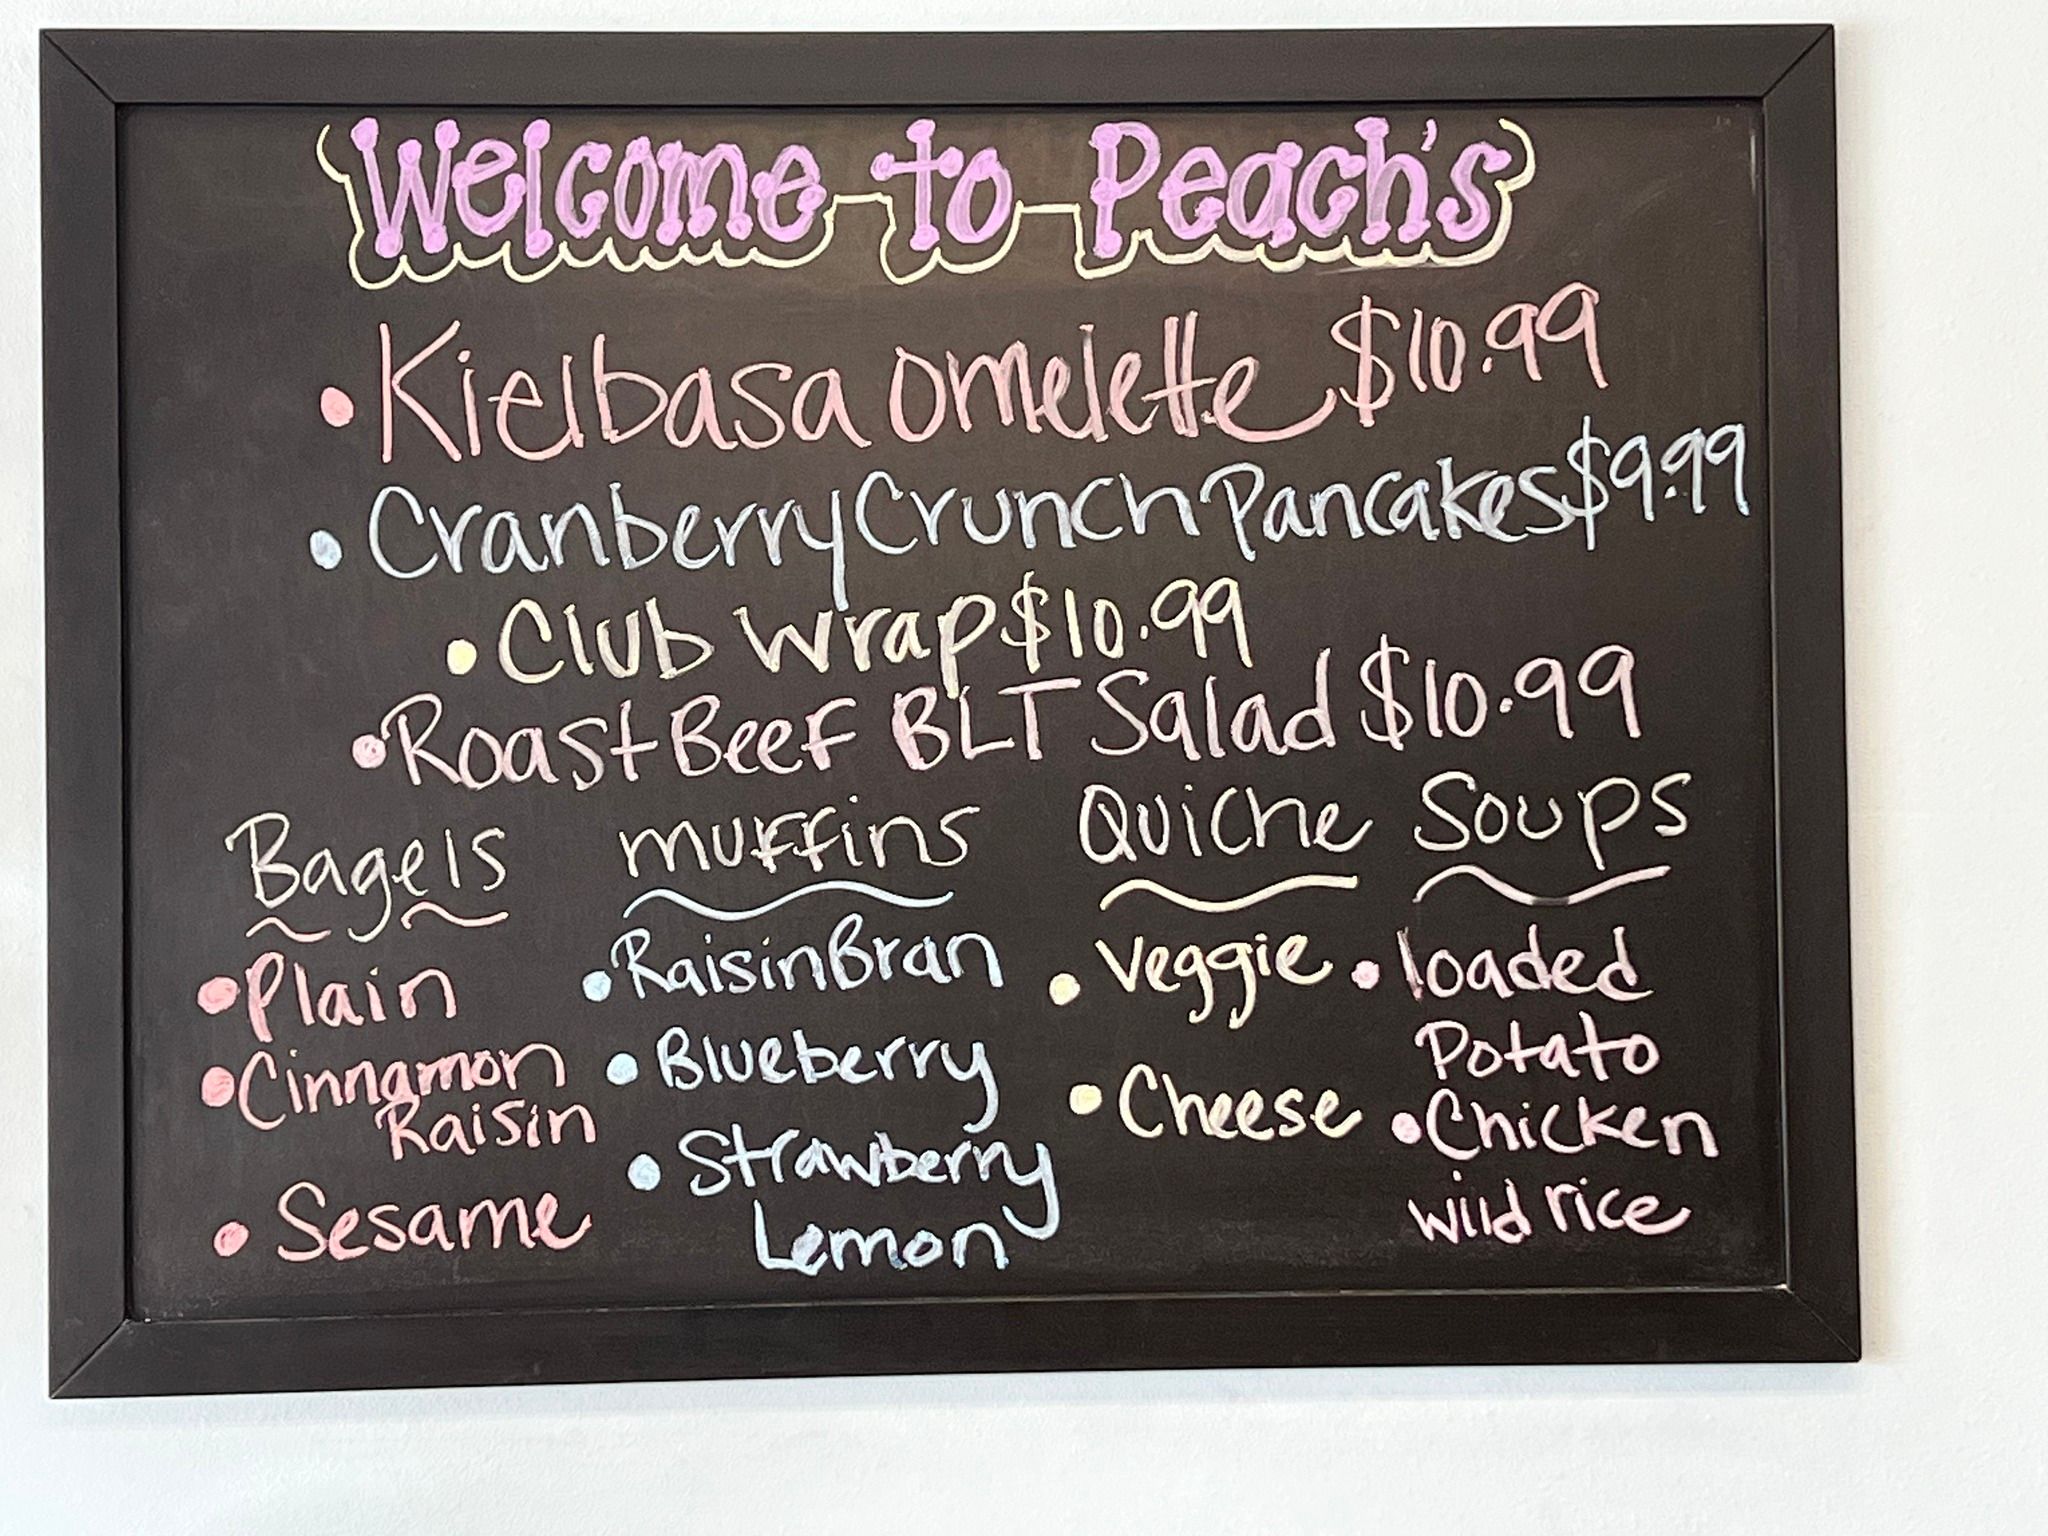 Welcome to Peach's
• Kielbasa omelette $10.99
• Cranberry Crunch Pancakes $9.99
• Club wrap $10.99
• Roast Beef BLT Salad $10.99
Bagels
• Plain
• Cinnamon
Raisin
• Sesame
muffins
• Raisin Bran
• Blueberry
• Strawberry
Lemon
Quiche
• Veggie
• Cheese
Soups
• loaded
Potato
• Chicken
wild rice